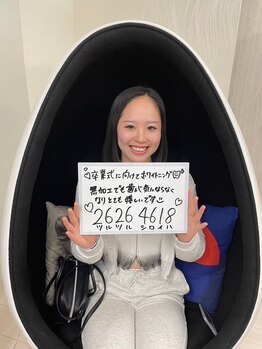 ♡卒業式に向けてホワイトニング
無加工でも歯が気にならなく
なりとても嬉しいです
♡2626 4618♡
ツルツル シロイハ